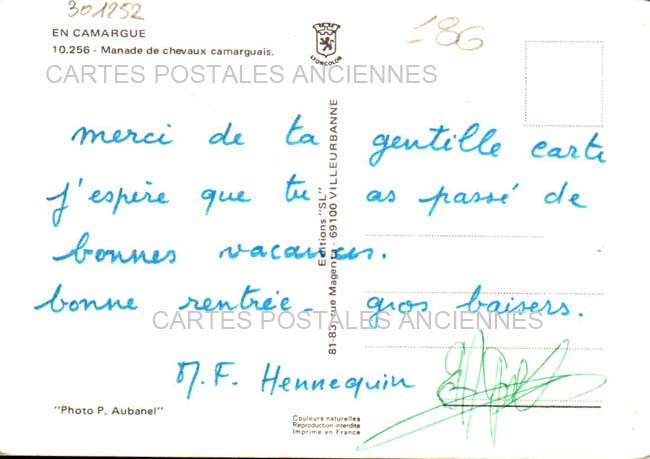 301252
EN CAMARGUE
10.256 - Manade de chevaux camarguais.
LYONCOLOR
186
CARTES POSTALES ANCIENNES
merci de ta gentille carte
j'espère que tu as passé de
bonnes vacances.
bonne rentrée - gros baisers.
CARTES POSTALES ANCIENNES
M.F. Hennequin
Editions "SL"
81-83, rue Magenta - 69100 VILLEURBANNE
"Photo P. Aubanel"
Couleurs naturelles
Reproduction interdite
Imprimé en France